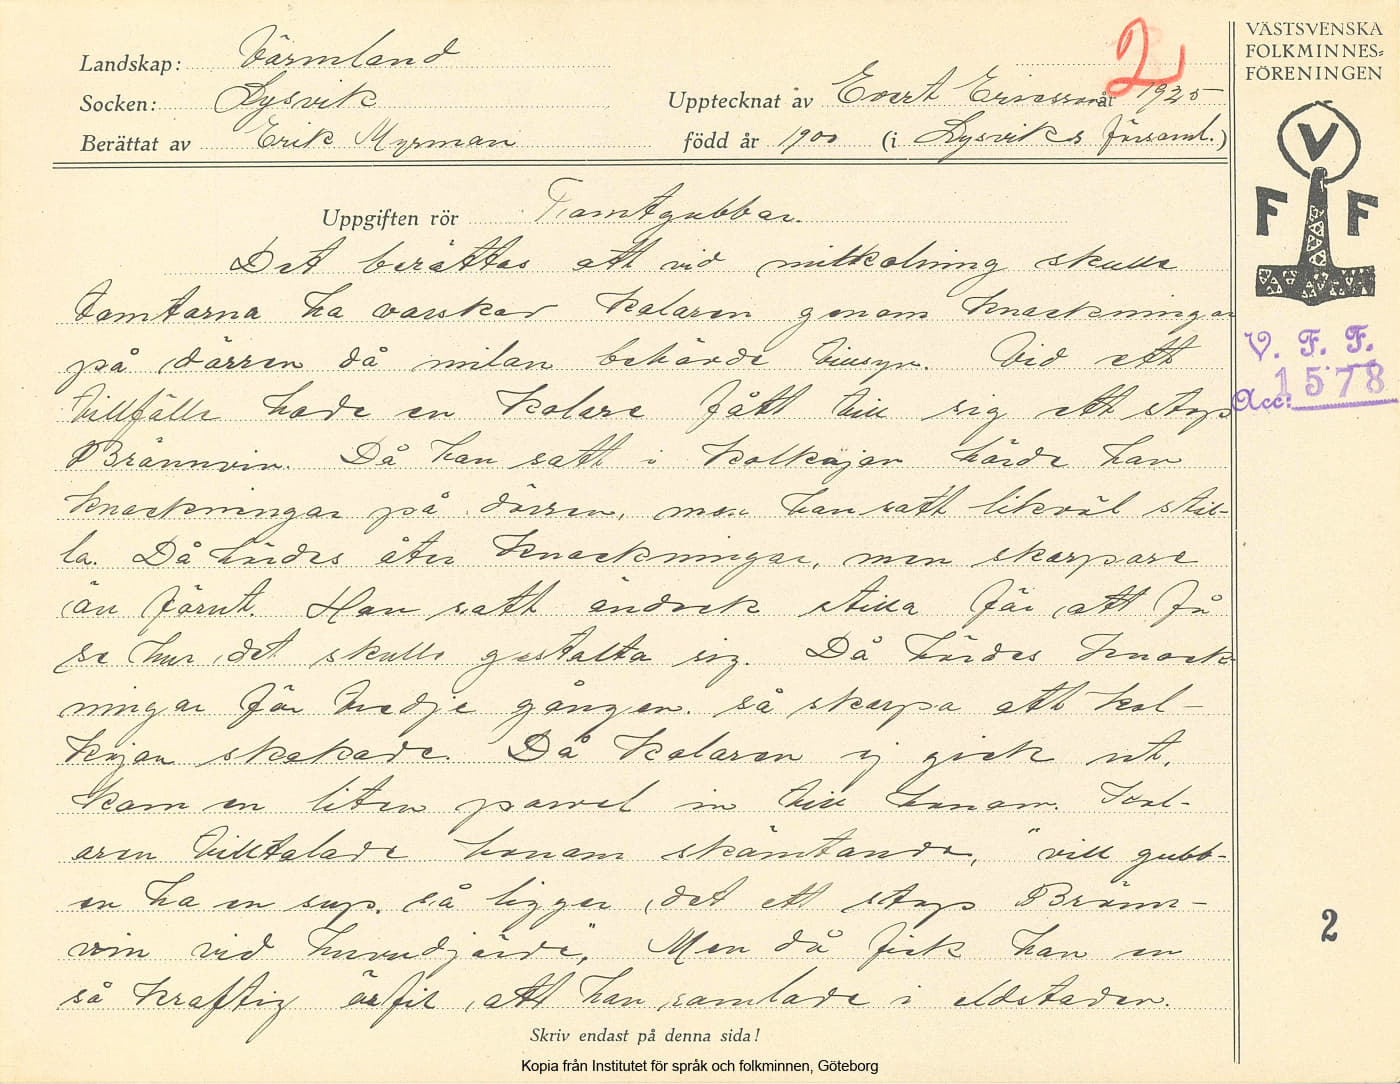 Landskap: Värmland
Socken: Lysvik
Berättat av Erik Myrman
2
Upptecknat av Evert Ericsson år 1925
född år 1900 (i Lysviks församl.)
VÄSTSVENSKA
FOLKMINNES=
FÖRENINGEN
V
F F
V. F. F.
Acc: 1578
Uppgiften rör Tomtgubbar.
Det berättas att vid milkolning skulle
tomtarna ha varskor kolaren genom knackningar
på dörren då milan behövde tillsyn. Vid ett
tillfälle hade en kolare fått till sig ett stop
Brännvin. Då han satt i kolkojan hörde han
knackningar på dörren, men han satt likväl stil-
la. Då hördes åter knackningar, men skarpare
än förut. Han satt ändock stilla för att få
se hur det skulle gestalta sig. Då hördes knack-
ningar för tredje gången. så skarpa att kol-
kojan skakade. Då kolaren ej gick ut,
kom en liten parvel in till honom. Kol-
aren tilltalade honom skämtande, "vill gubb-
en ha en sup. så ligger det ett stop Bränn-
vin vid huvudgärde". Men då fick han en
så kraftig örfil, att han ramlade i eldstaden.
2
Skriv endast på denna sida!
Kopia från Institutet för språk och folkminnen, Göteborg